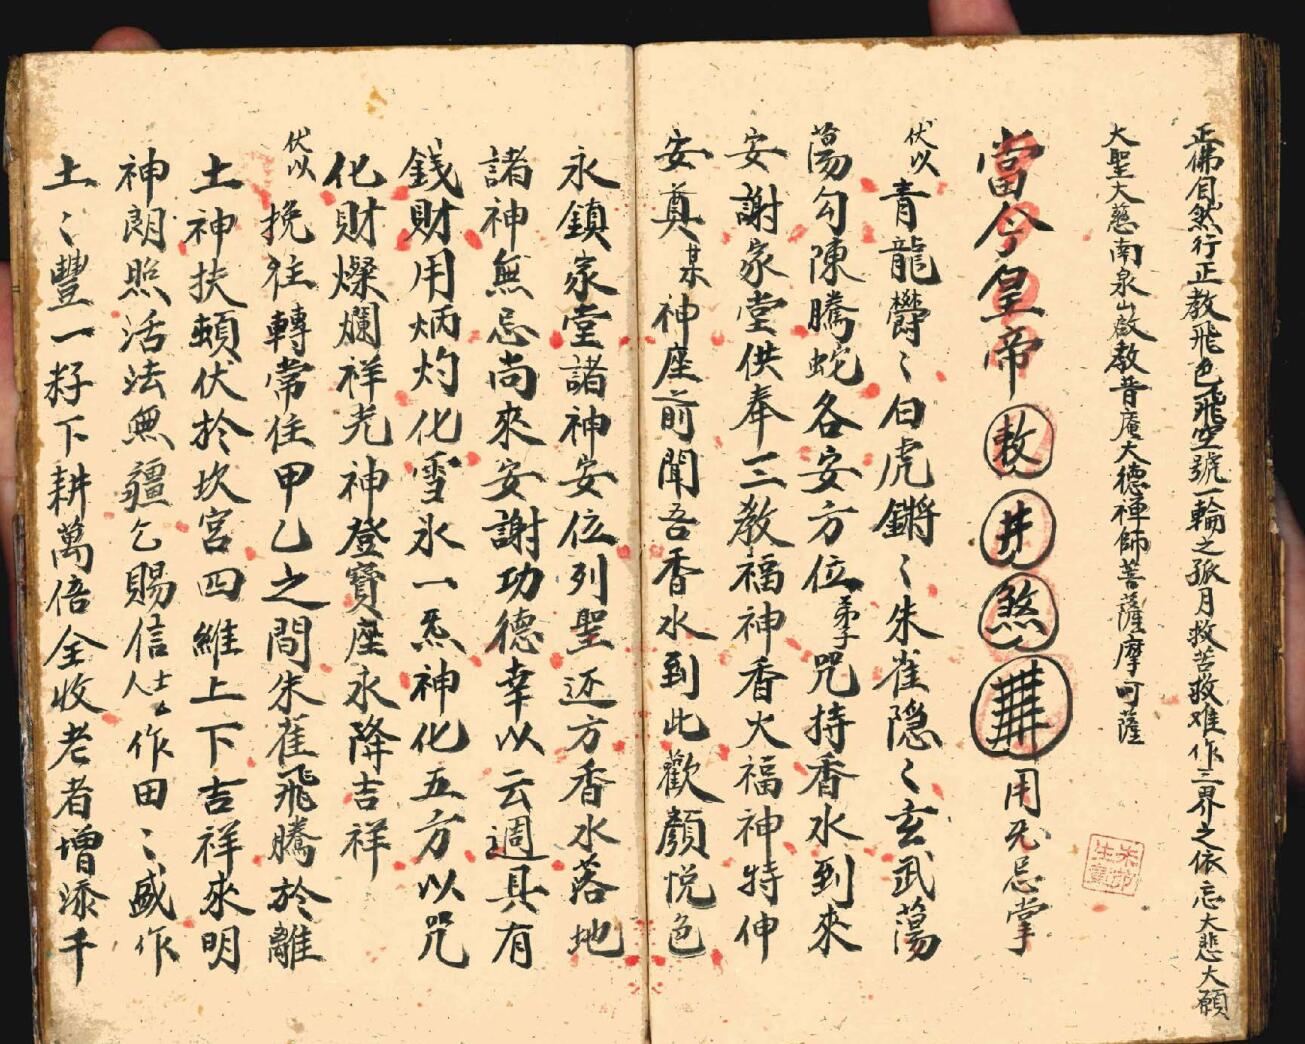 正佛自然行正教飛色飛空號一輪之孤月救苦救难作三界之依忘大悲大願
大聖大慈南泉山啟教普庵大德禅師菩薩摩呵薩
當今皇帝敕井煞用旡忌掌
伏以青龍欝〻白虎鏘〻朱雀隐〻玄武蕩
蕩勾陳騰蛇各安方位弟子咒持香水到來
安謝家堂供奉三教福神香火福神特伸
安奠某神座前聞吾香水到此歡顏悅色
永鎮家堂諸神安位列聖还方香水落地
諸神無忌尚來安謝功德幸以云週具有
錢財用炳灼化雪氷一炁神化五方以咒
化財燦爛祥光神登寶座永降吉祥
伏以挽往轉常住甲乙之間朱雀飛騰於離
土神扶頼伏於坎宮四維上下吉祥來明
神朗照活法無疆乞賜信士人作田〻盛作
土〻豐一籽下耕萬倍全收老者增添千